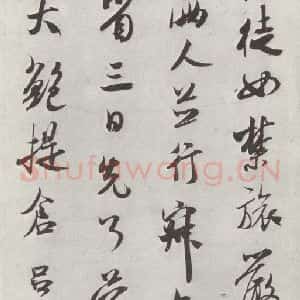 徒如禁旅嚴
兩人並行寐
三日先了
大鮑提倉呂
Shufawang.CN